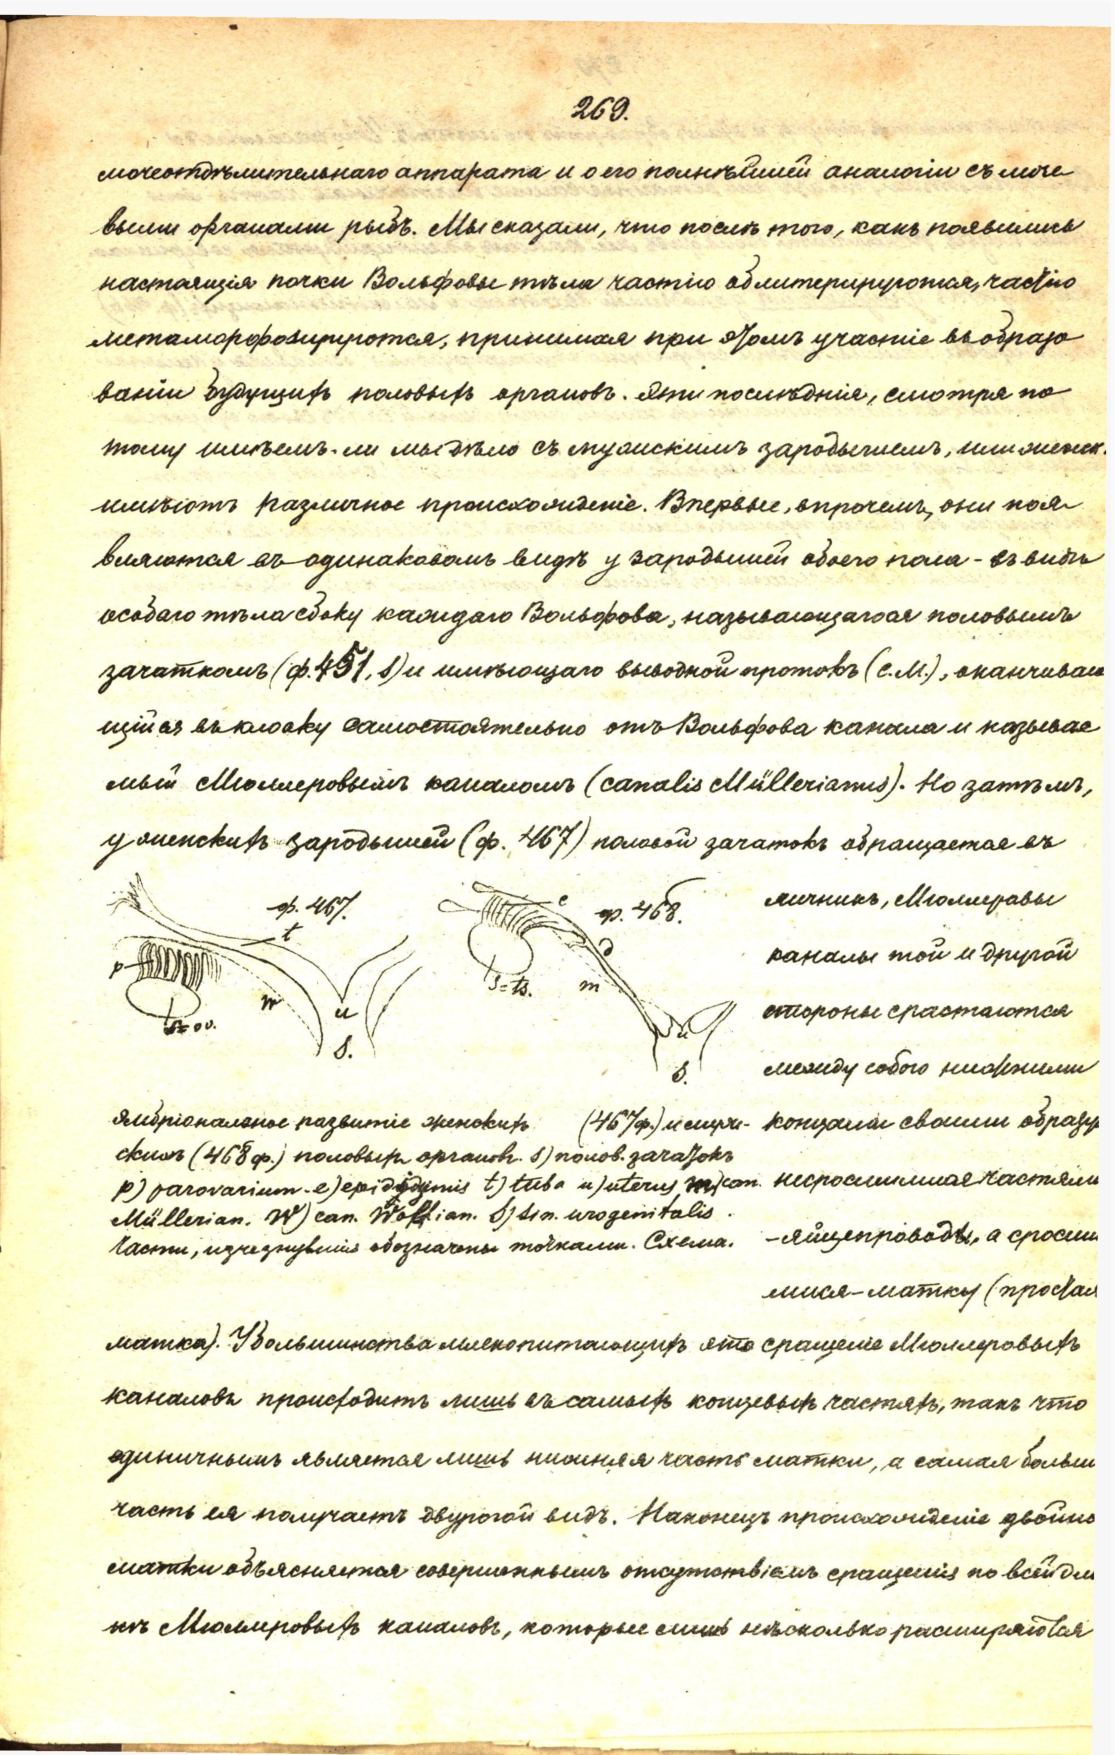 269.
мочеотдѣлительнаго аппарата и о его полнѣйшей аналогіи съ моче
выми органами рыбъ. Мы сказали, что послѣ того, какъ появились
настоящія почки Вольфовы тѣла частію облитерируются, частію
метаморфозируются, принимая при этомъ участіе въ образо
ваніи будущихъ половыхъ органовъ. Эти послѣднія, смотря по
тому имѣемъ-ли мы дѣло съ мужскимъ зародышемъ, или женск.
имѣютъ различное происхожденіе. Впервые, впрочемъ, они поя-
вляются въ одинаковомъ видѣ у зародышей обоего пола - въ видѣ
особаго тѣла сбоку каждаго Вольфова, называющагося половымъ
зачаткомъ (ф. 451, s) и имѣющаго выводной протокъ (c.M.), оканчиваю
щійся въ клоаку самостоятельно отъ Вольфова канала и называе
мый Мюллеровымъ каналомъ (canalis Müllerianus). Но затѣмъ,
у женскихъ зародышей (ф. 467) половой зачатокъ обращается въ
яичникъ, Мюллеровы
каналы той и другой
стороны срастаются
между собою нижними
концами своими образу
несросшимися частями
-яйцепроводы, а сросши
мися-матку (простая
ф. 467.
t
p
w
u
s=ov.
S.
ф. 468.
e
d
s=ts.
m
u
S.
Эмбріональное развитіе женскихъ (467ф.) и мужс-
скихъ (468ф.) половыхъ органовъ. s) полов. зачатокъ
p) parovarium. e) epididymis t) tuba u) uterus m) can.
Müllerian. W) can. Wolfian. S) sin. urogenitalis.
Части, изчезнувшія обозначены точками. Схема.
матка). У большинства млекопитающихъ это сращеніе Мюллеровыхъ
каналовъ происходитъ лишь въ самыхъ концевыхъ частяхъ, такъ что
единичнымъ является лишь нижняя часть матки, а самая больш
часть ея получаетъ двурогой видъ. Наконецъ происхожденіе двойно
матки объясняется совершеннымъ отсутствіемъ сращенія по всей дли
нѣ Мюллеровыхъ каналовъ, которые лишь нѣсколько расширяются